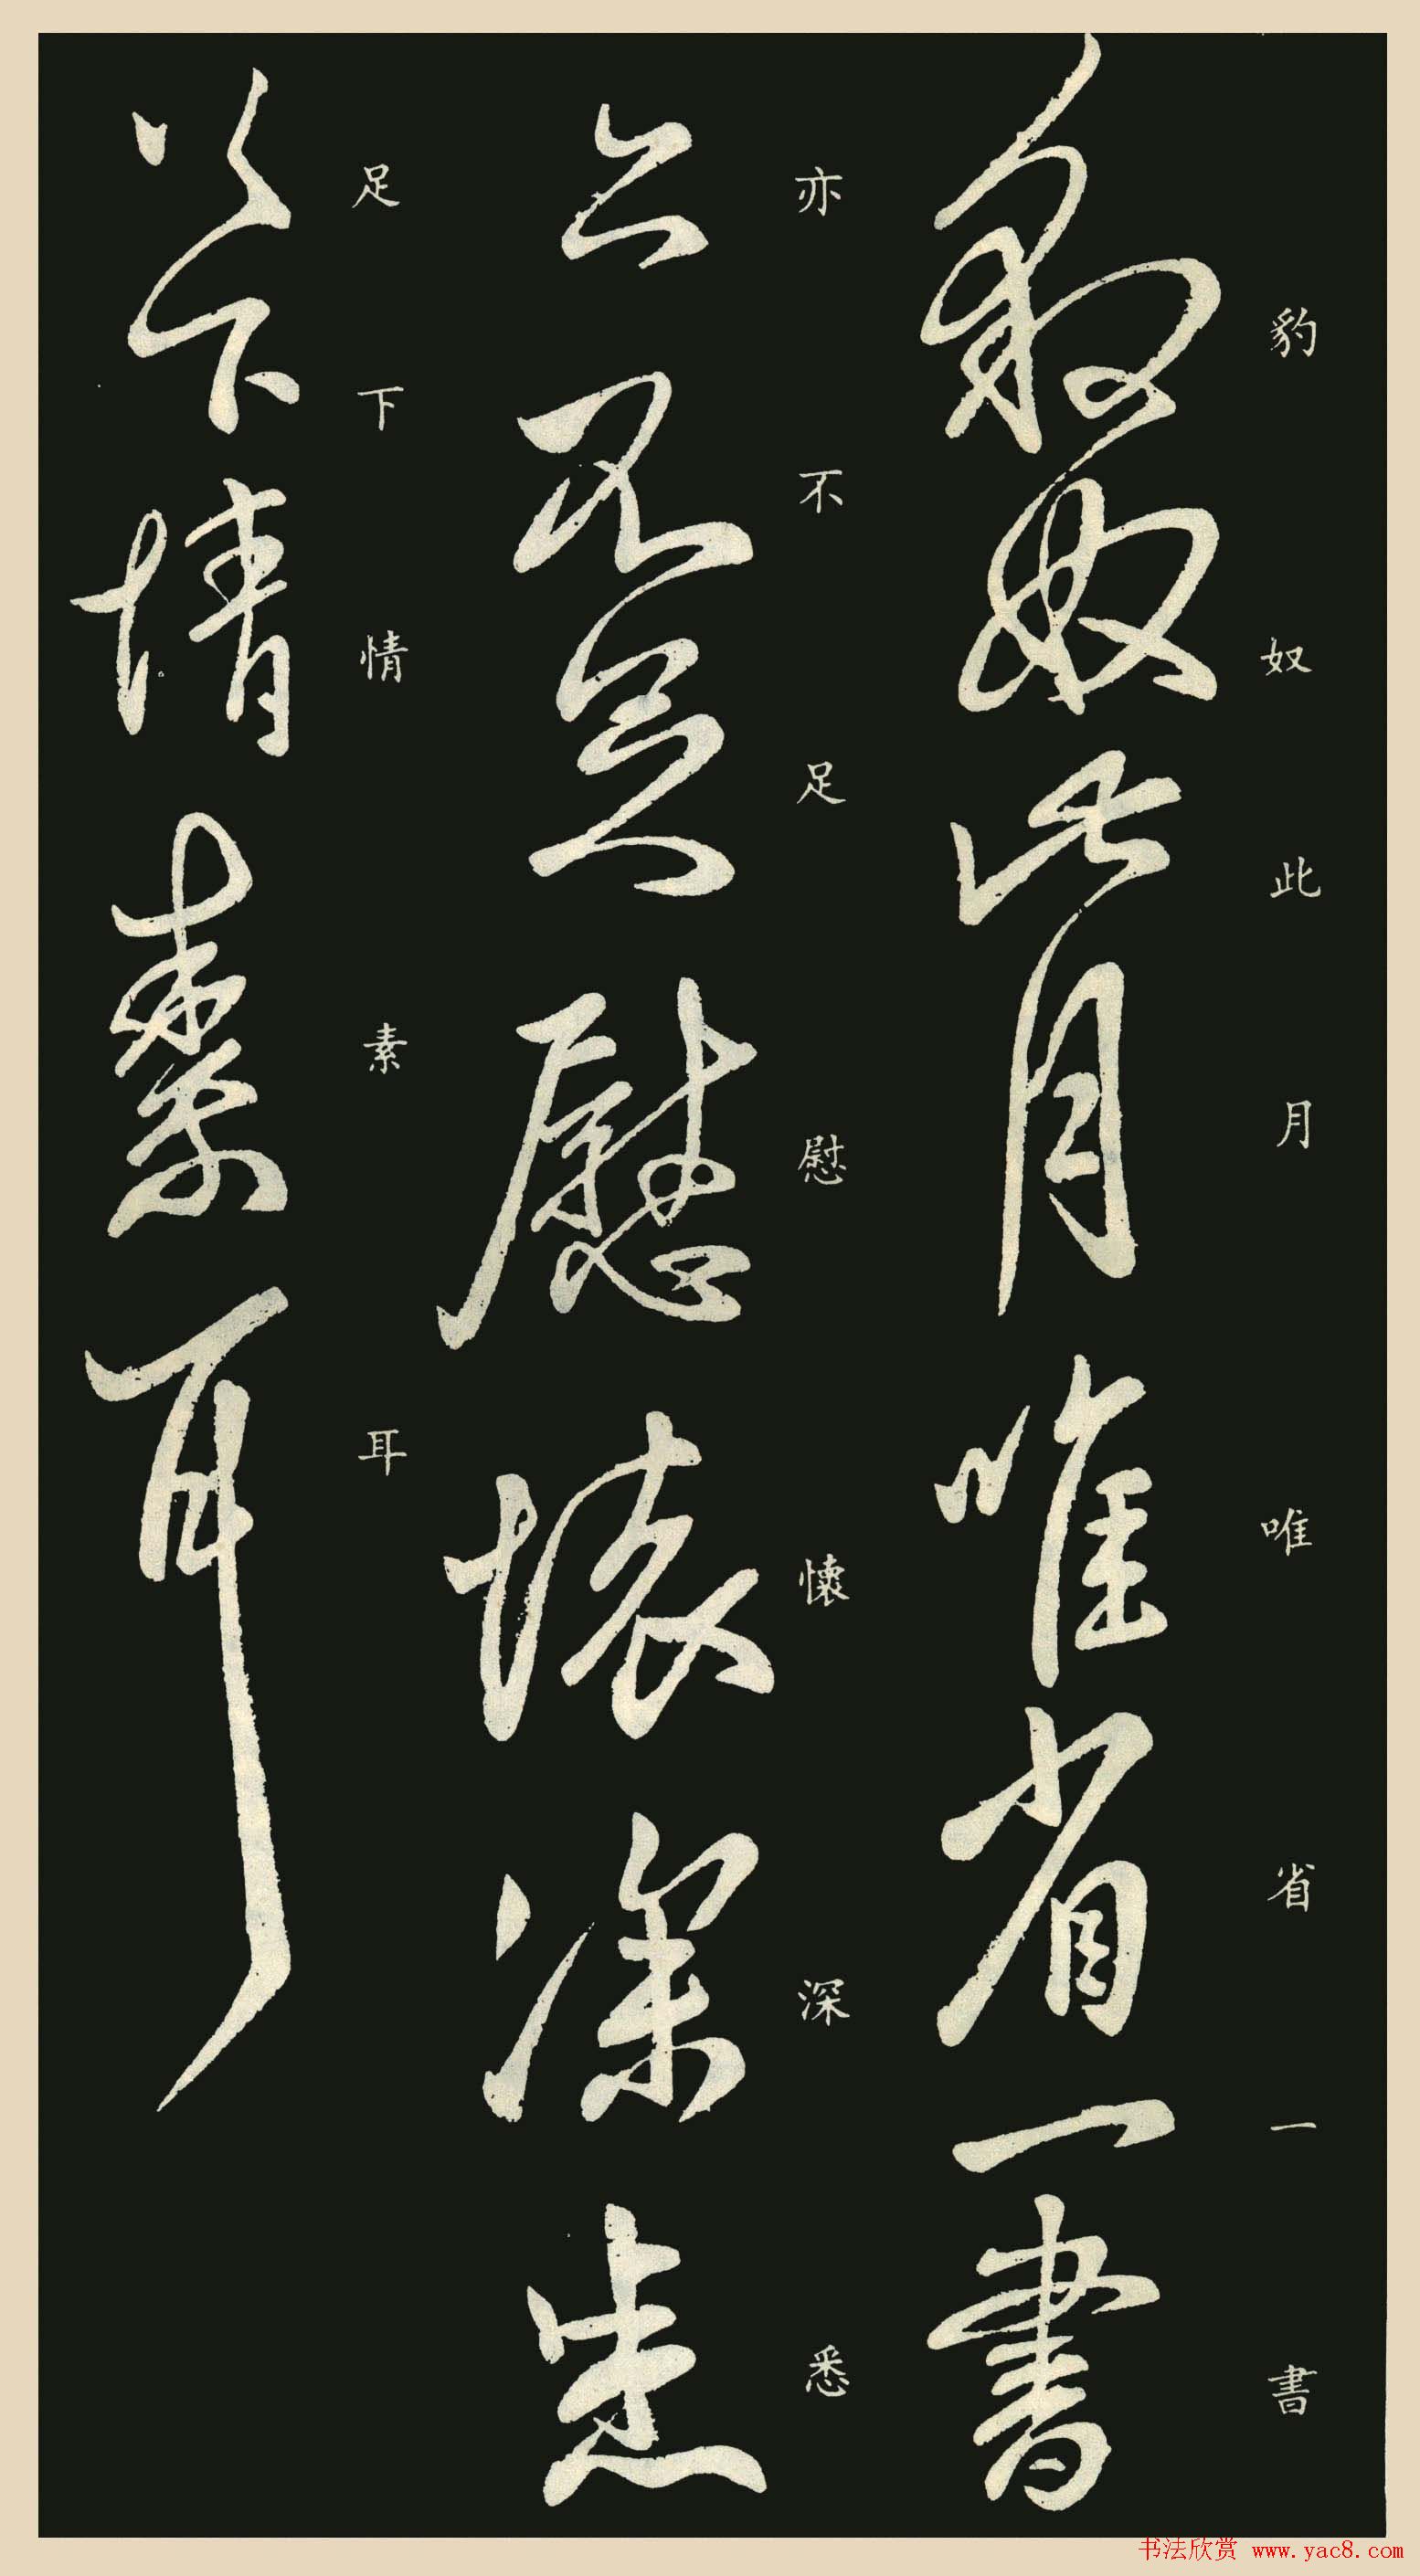 豹奴此月唯省一書
亦不足慰懷深悉
足下情素耳
豹奴此月唯省一書
亦不足慰懷深悉
足下情素耳
书法欣赏 www.yac8.com